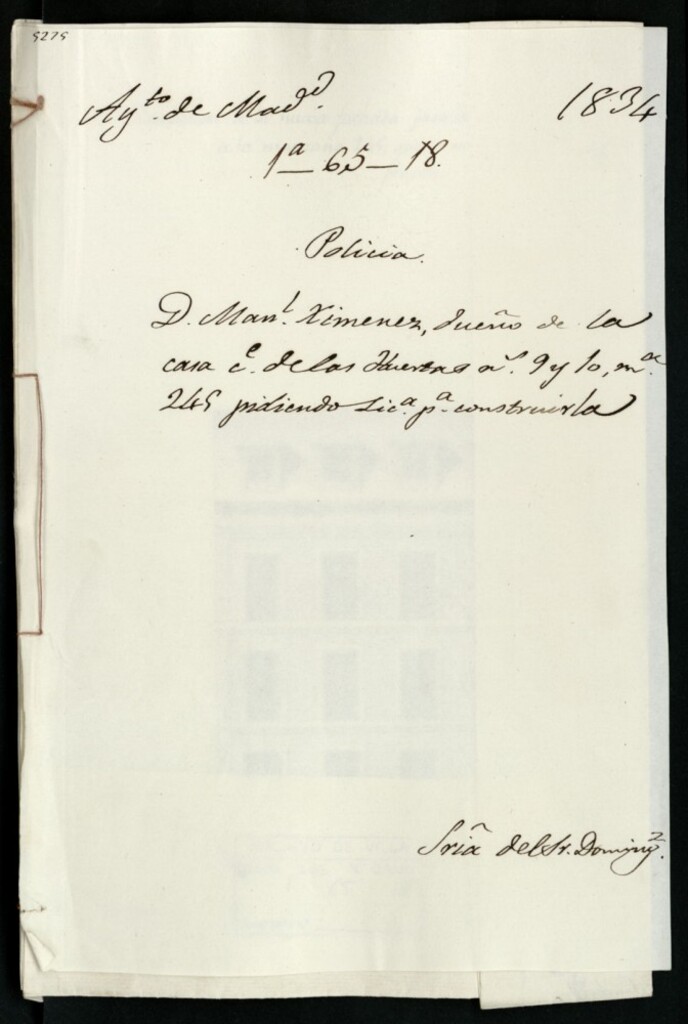 5275
Ay.to de Mad.d 1834
1a - 65 - 18.
Policia.
D. Man.l Ximenez, dueño de la
casa c.e de las Huertas n.s 9 y 10, m.a
245 pidiendo Lic.a p.a construirla
Sria del Sr. Doming.z